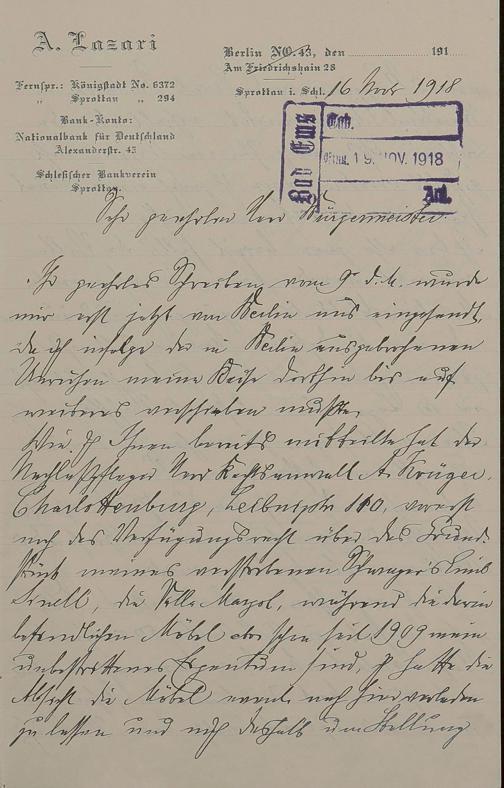 A. Lazari
Fernspr.: Königstadt No. 6372
" Sprottau " 294
Bank-Konto:
Nationalbank für Deutschland
Alexanderstr. 45
Schlesischer Bankverein
Sprottau.
Berlin NO. 43, den 191
Am Friedrichshain 28
Sprottau i. Schl. 16 Nov 1918
Bad Ems
Tgb.
Eing. 19. NOV. 1918
Anl.
Sehr geehrter Herr Bürgermeister.
Ihr geehrtes Schreiben vom 9 d. M. wurde
mir erst jetzt von Berlin aus eingesandt,
da ich infolge der in Berlin ausgebrochenen
Unruhen meine Reise dorthin bis auf
weiteres verschieben mußte.
Wie ich Ihnen bereits mitteilte hat der
Nachlaßpfleger Herr Rechtsanwalt A. Krüger.
Charlottenburg, Leibnizstr 110, vorerst
noch das Verfügungsrecht über das Grund-
stück meines verstorbenen Schwagers Emil
die Villa während die darin
befindlichen Möbel schon seit 1909 mein
unbestrittenes Eigentum sind, ich hatte die
Absicht die Möbel event. nach hier verladen
zu lassen und mich deshalb um Stellung